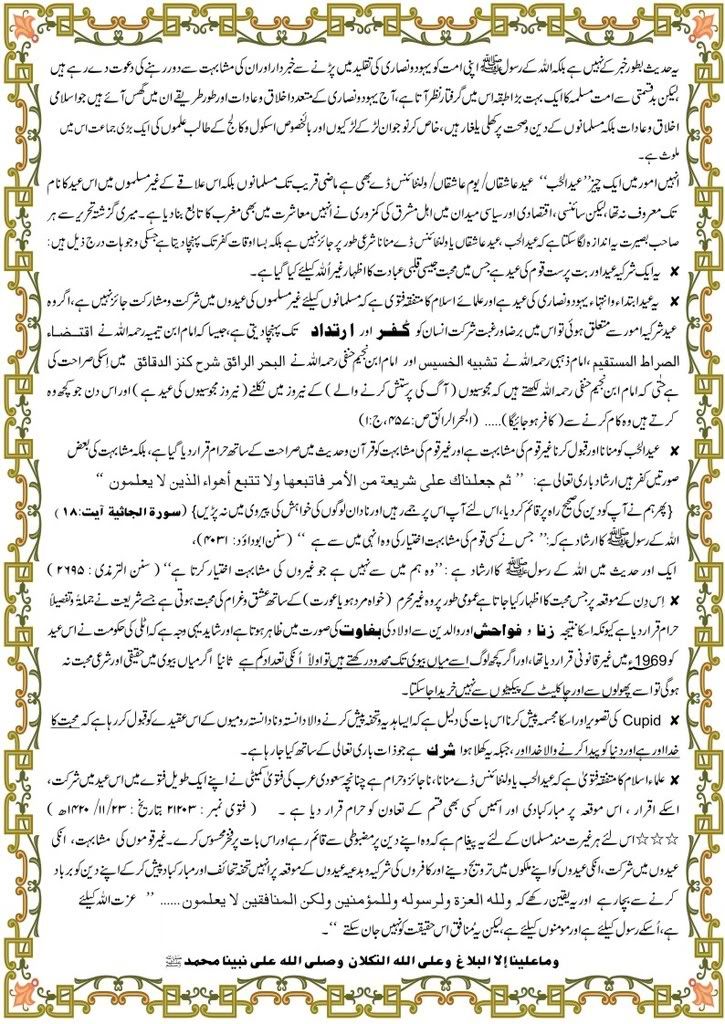 یہ حدیث بطور خبر کے نہیں ہے بلکہ اللہ کے رسول ﷺ اپنی امت کو یہود ونصاری کی تقلید میں پڑنے سے خبردار اور ان کی مشابہت سے دور رہنے کی دعوت دے رہے ہیں
لیکن بدقسمتی سے امت مسلمہ کا ایک بہت بڑا طبقہ اس میں گرفتار نظر آتا ہے، آج یہود ونصاری کے متعدد اخلاق وعادات اور طور طریقے ان میں گھس آئے ہیں جو اسلامی
اخلاق وعادات بلکہ مسلمانوں کے دین وصحت پر کھلی یلغار ہیں، خاص کر نوجوان لڑکے لڑکیوں اور بالخصوص اسکول وکالج کے طالب علموں کی ایک بڑی جماعت اس میں
ملوث ہے۔
انہیں امور میں ایک چیز "عید الحُب" عید عاشقاں/ یوم عاشقاں/ ولنٹائنس ڈے بھی ہے ماضی قریب تک مسلمانوں بلکہ اس علاقے کے غیر مسلموں میں اس عید کا نام
تک معروف نہ تھا، لیکن سائنسی، اقتصادی اور سیاسی میدان میں اہل مشرق کی کمزوری نے انہیں معاشرت میں بھی مغرب کا تابع بنا دیا ہے۔ میری گزشتہ تحریر سے ہر
صاحب بصیرت یہ اندازہ لگا سکتا ہے کہ عید الحب، عید عشاقاں یا ولنٹائنس ڈے منانا شرعی طور پر جائز نہیں ہے بلکہ بسا اوقات کفر تک پہنچا دیتا ہے جسکی وجوہات درج ذیل ہیں:
✘ یہ ایک شرکیہ عید اور بت پرست قوم کی عید ہے جس میں محبت جیسی قلبی عبادت کا اظہار غیر اللہ کیلئے کیا گیا ہے۔
✘ یہ عید ابتداء وانتہاء یہود ونصاری کی عید ہے اور علمائے اسلام کا متفقہ فتوی ہے کہ مسلمانوں کیلئے غیر مسلموں کی عیدوں میں شرکت ومشارکت جائز نہیں ہے، اگر وہ
عید شرکیہ امور سے متعلق ہوئی تو اس میں برضا ورغبت شرکت انسان کو کُفر اور ارتداد تک پہنچا دیتی ہے، جیسا کہ امام ابن تیمیہ رحمہ اللہ نے اقتضاء
الصراط المستقیم، امام ذہبی رحمہ اللہ نے تشبیه الخسیس اور امام ابن نجیم حنفی رحمہ اللہ نے البحر الرائق شرح کنز الدقائق میں اسکی صراحت کی
ہے حتٰی کہ امام ابن نجیم حنفی رحمہ اللہ لکھتے ہیں کہ مجوسیوں (آگ کی پرستش کرنے والے) کے نیروز میں نکلنے (نیروز مجوسیوں کی عید ہے) اور اس دن جو کچھ وہ
کرتے ہیں وہ کام کرنے سے (کافر ہو جائیگا)..... (البحر الرائق ص:۴۵۷، ج:۱)
✘ عید الحُب کو منانا اور قبول کرنا غیر قوم کی مشابہت ہے اور غیر قوم کی مشابہت کو قرآن وحدیث میں صراحت کے ساتھ حرام قرار دیا گیا ہے، بلکہ مشابہت کی بعض
صورتیں کفر ہیں ارشاد باری تعالی ہے: "ثم جعلناك على شريعة من الأمر فاتبعها ولا تتبع أهواء الذين لا يعلمون"
{پھر ہم نے آپ کو دین کی صحیح راہ پر قائم کر دیا، اس لئے آپ اس پر جمے رہیں اور نادان لوگوں کی خواہش کی پیروی میں نہ پڑیں} (سورة الجاثية آیت:۱۸)
اللہ کے رسول ﷺ کا ارشاد ہے کہ: "جس نے کسی قوم کی مشابہت اختیار کی وہ انہی میں سے ہے" (سنن ابو داؤد: ۴۰۳۱)،
ایک اور حدیث میں اللہ کے رسول ﷺ کا ارشاد ہے: "وہ ہم میں سے نہیں ہے جو غیروں کی مشابہت اختیار کرتا ہے" (سنن الترمذی: ۲۶۹۵)
✘ اِس دِن کے موقعہ پر جس محبت کا اظہار کیا جاتا ہے عمومی طور پر وہ غیر محرم (خواہ مرد ہو یا عورت) کے ساتھ عشق وغرام کی محبت ہوتی ہے جسے شریعت نے جملۃً وتفصیلاً
حرام قرار دیا ہے کیونکہ اسکا نتیجہ زنا و فواحش اور والدین سے اولاد کی بغاوت کی صورت میں ظاہر ہوتا ہے اور شاید یہی وجہ ہے کہ اٹلی کی حکومت نے اس عید
کو 1969ء میں غیر قانونی قرار دیا تھا، اور اگر کچھ لوگ اسے میاں بیوی تک محدود رکھتے ہیں تو اولاً اُنکی تعداد کم ہے ثانیاً اگر میاں بیوی میں حقیقی اور شرعی محبت نہ
ہوگی تو اسے پھولوں سے اور چاکلیٹ کے پیکٹوں سے نہیں خریدا جا سکتا۔
✘ Cupid کی تصویر اور اسکا مجسمہ پیش کرنا اس بات کی دلیل ہے کہ ایسا ہدیہ وتحفہ پیش کرنے والا دانستہ ونادانستہ رومیوں کے اس عقیدے کو قبول کر رہا ہے کہ محبت کا
خدا اور ہے اور دنیا کو پیدا کرنے والا خدا اور، جبکہ یہ کھلا ہوا شرک ہے جو ذات باری تعالی کے ساتھ کیا جا رہا ہے۔
✘ علماء اسلام کا متفقہ فتویٰ ہے کہ عید الحُب یا ولنٹائنس ڈے منانا، ناجائز وحرام ہے چنانچہ سعودی عرب کی فتویٰ کمیٹی نے اپنے ایک طویل فتوے میں اس عید میں شرکت،
اسکے اقرار، اس موقعہ پر مبارکبادی اور اسمیں کسی بھی قسم کے تعاون کو حرام قرار دیا ہے۔ (فتوی نمبر: ۲۱۲۰۳ بتاریخ: ۱۴۲۰/۱۱/۲۳ھ)
☆☆☆ اس لئے ہر غیرت مند مسلمان کے لئے یہ پیغام ہے کہ وہ اپنے دین پر مضبوطی سے قائم رہے اور اس بات پر فخر محسوس کرے۔ غیر قوموں کی مشابہت، انکی
عیدوں میں شرکت، انکی عیدوں کو اپنے ملکوں میں ترویج دینے اور کافروں کی شرکیہ وبدعیہ عیدوں کے موقعہ پر انہیں تحفہ تحائف اور مبارکباد پیش کر کے اپنے دین کو برباد
کرنے سے بچا رہے اور یہ یقین رکھے کہ ولله العزة ولرسوله وللمؤمنين ولكن المنافقين لا يعلمون ...... "عزت اللہ کیلئے
ہے، اُسکے رسول کیلئے ہے اور مومنوں کیلئے ہے، لیکن یہ مُنافق اس حقیقت کو نہیں جان سکتے"۔
وما علينا إلا البلاغ وعلى الله التكلان وصلى الله على نبينا محمد ﷺ